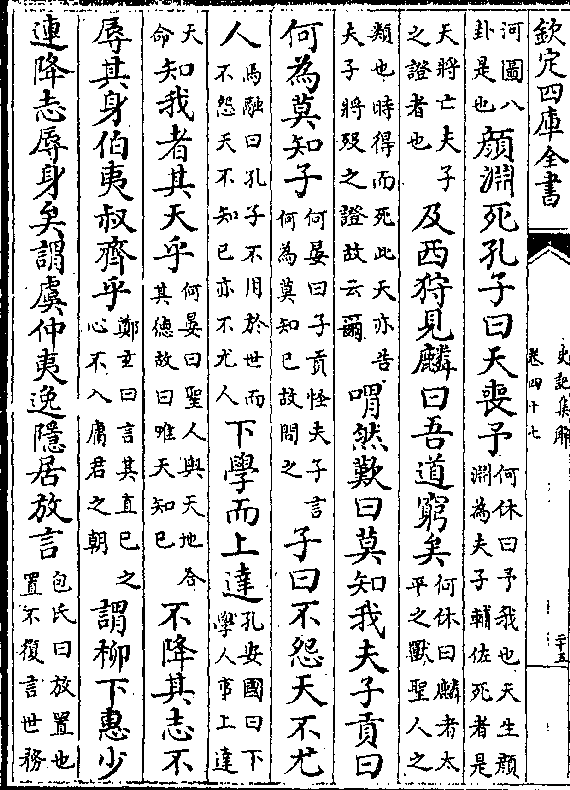 欽定四庫全書
史記集解
卷四十七
二十五
河圖八卦是也顔淵死孔子曰天喪予何休曰予我也天生顔淵為夫子輔佐死者是
天將亡夫子之證者也及西狩見麟曰吾道窮矣何休曰麟者太平之獸聖人之
類也時得而死此天亦告夫子將殁之證故云爾喟然歎曰莫知我夫子貢曰
何為莫知子何晏曰子貢怪夫子言何為莫知已故問之子曰不怨天不尤
人馬融曰孔子不用於世而不怨天不知已亦不尤人下學而上達孔安國曰下學人事上達
天命知我者其天乎何晏曰聖人與天地合其德故曰唯天知已不降其志不
辱其身伯夷叔齊乎鄭玄曰言其直已之心不入庸君之朝謂柳下惠少
連降志辱身矣謂虞仲夷逸隱居放言包氏曰放置也置不復言世務